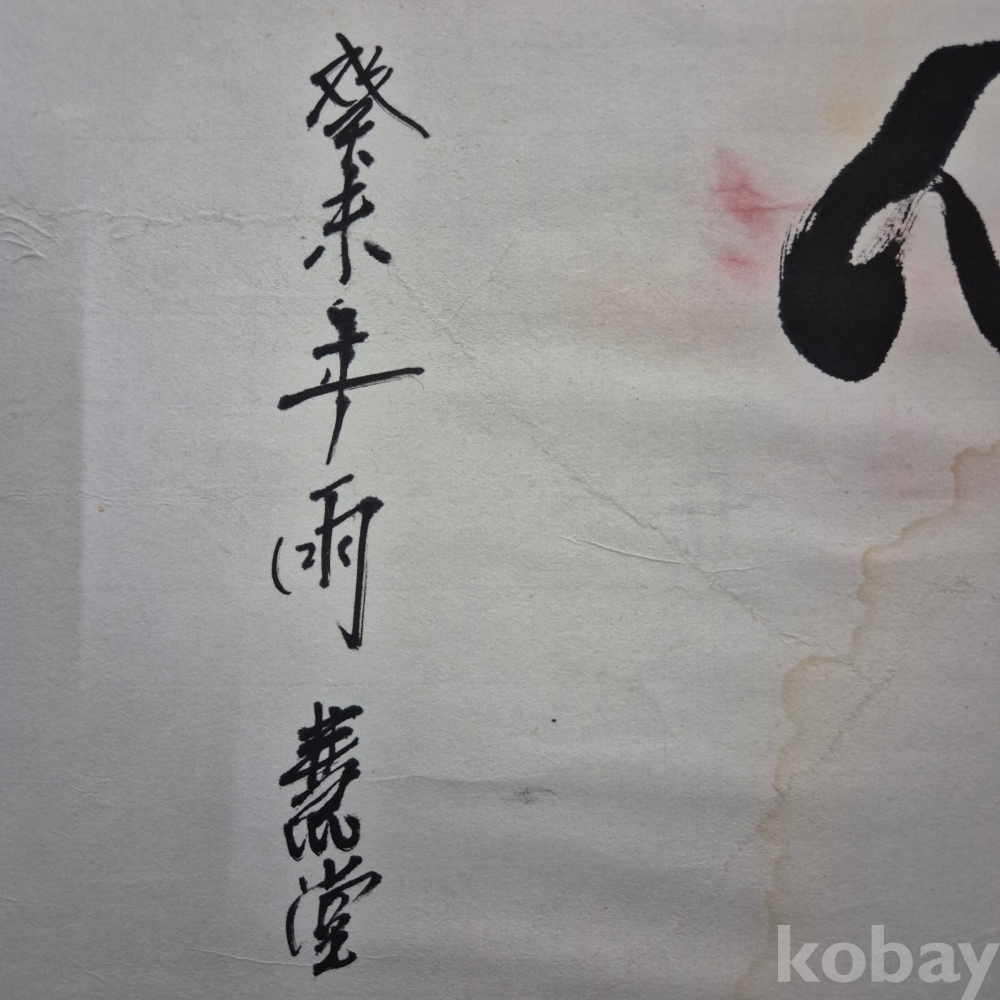 癸未年雨
慧堂
kobay